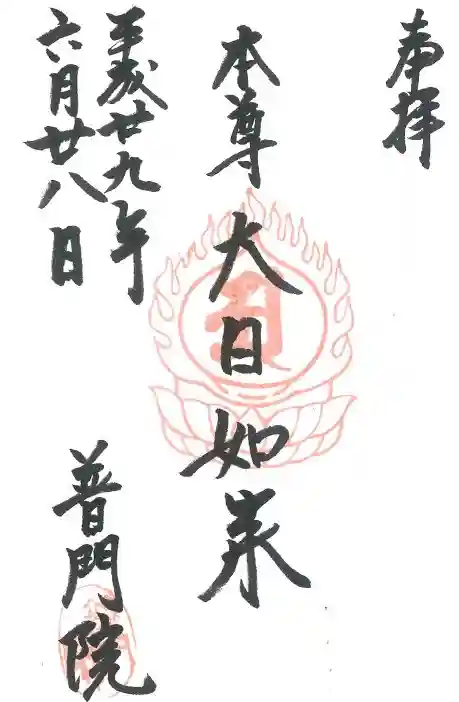 奉拝
本尊 大日如来
平成廿九年
六月廿八日
普門院